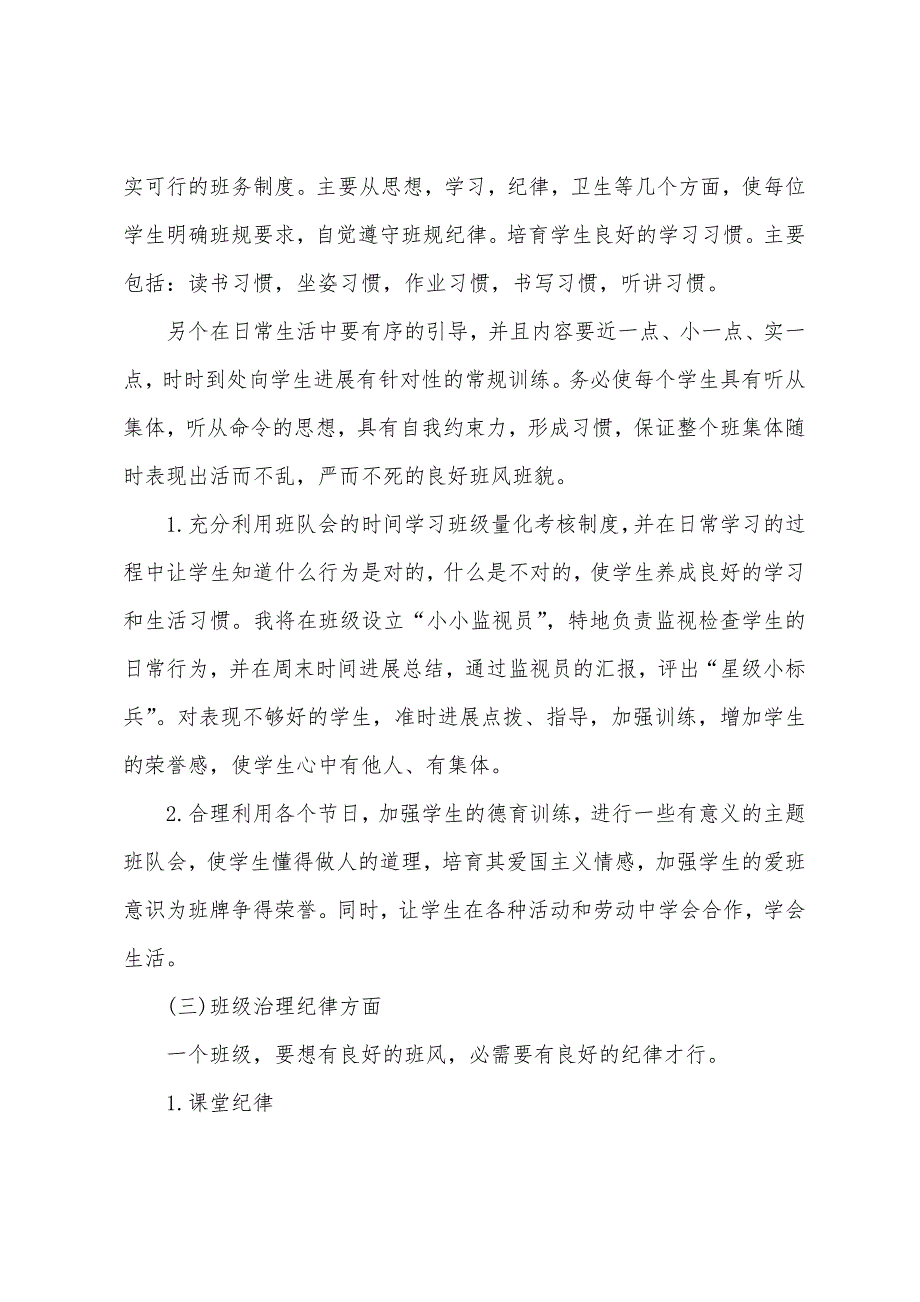 实可行的班务制度。主要从思想，学习，纪律，卫生等几个方面，使每位
学生明确班规要求，自觉遵守班规纪律。培育学生良好的学习习惯。主要
包括：读书习惯，坐姿习惯，作业习惯，书写习惯，听讲习惯。
另个在日常生活中要有序的引导，并且内容要近一点、小一点、实一
点，时时到处向学生进展有针对性的常规训练。务必使每个学生具有听从
集体，听从命令的思想，具有自我约束力，形成习惯，保证整个班集体随
时表现出活而不乱，严而不死的良好班风班貌。
1.充分利用班队会的时间学习班级量化考核制度，并在日常学习的过
程中让学生知道什么行为是对的，什么是不对的，使学生养成良好的学习
和生活习惯。我将在班级设立“小小监视员”，特地负责监视检查学生的
日常行为，并在周末时间进展总结，通过监视员的汇报，评出“星级小标
兵”。对表现不够好的学生，准时进展点拨、指导，加强训练，增加学生
的荣誉感，使学生心中有他人、有集体。
2.合理利用各个节日，加强学生的德育训练，进行一些有意义的主题
班队会，使学生懂得做人的道理，培育其爱国主义情感，加强学生的爱班
意识为班牌争得荣誉。同时，让学生在各种活动和劳动中学会合作，学会
生活。
(三)班级治理纪律方面
一个班级，要想有良好的班风，必需要有良好的纪律才行。
1.课堂纪律